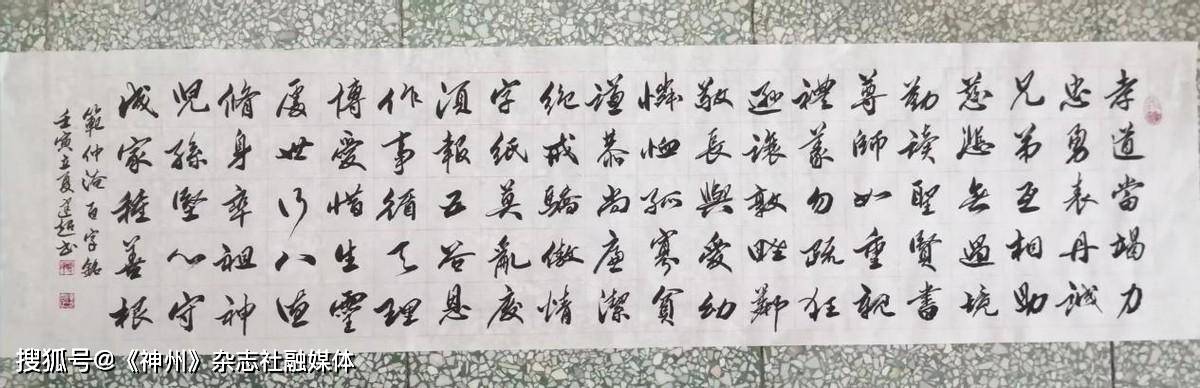 孝道當竭力
忠勇表丹誠
兄弟互相助
慈悲无過境
勤讀聖賢書
尊師如重親
禮義勿疏狂
遜讓敦睦鄰
敬長與愛幼
憐恤孤寡貧
謙恭尚廉潔
絕戒驕傲情
字紙莫亂廢
須報五谷恩
作事循天理
博愛惜生靈
處世行八德
脩身率祖神
児孫堅心守
成家種善根
範仲淹百字銘
壬寅立夏超书
搜狐号@《神州》杂志社融媒体